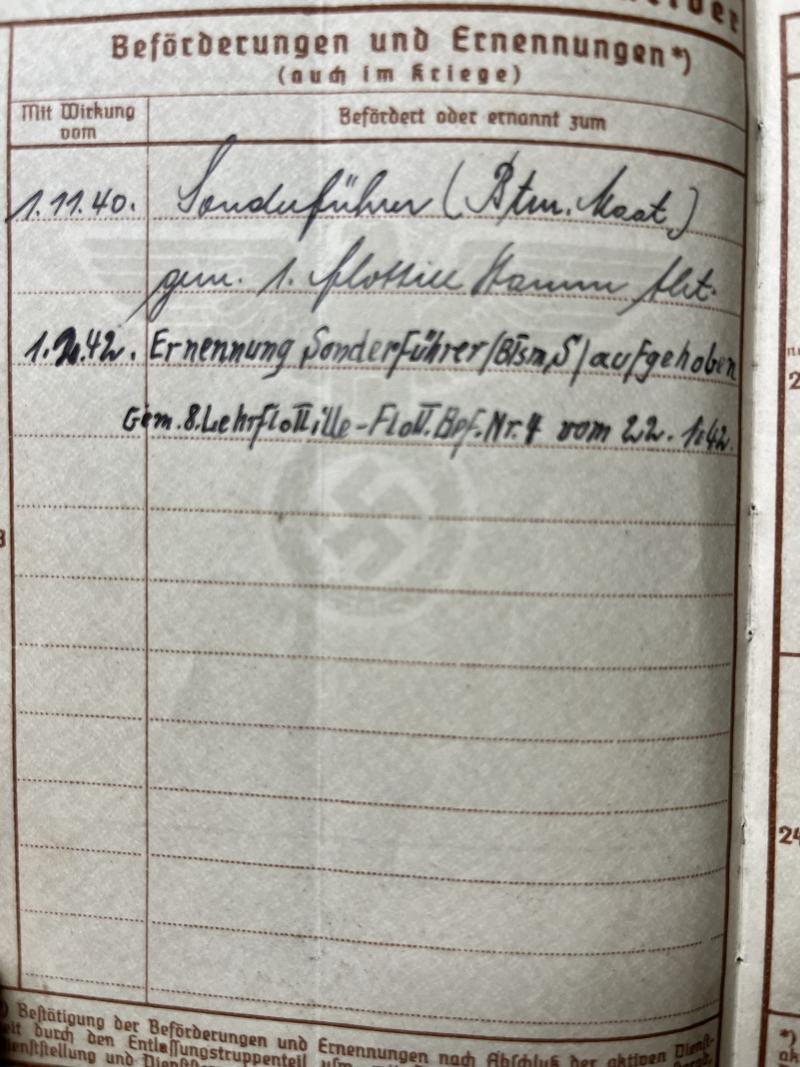 Beförderungen und Ernennungen*)
(auch im Kriege)
Mit Wirkung vom
Befördert oder ernannt zum
1.11.40. Sonderführer (Btm. Maat)
gem. 1. Flottill Stamm Abt.
1.2.42. Ernennung Sonderführer (Btsm, S) aufgehoben
Gem. 8. Lehrflottille - Flott. Bef. Nr. 4 vom 22. 1. 42.
*) Bestätigung der Beförderungen und Ernennungen nach Abschluß der aktiven Dienst-
durch den Entlassungstruppenteil
und
24